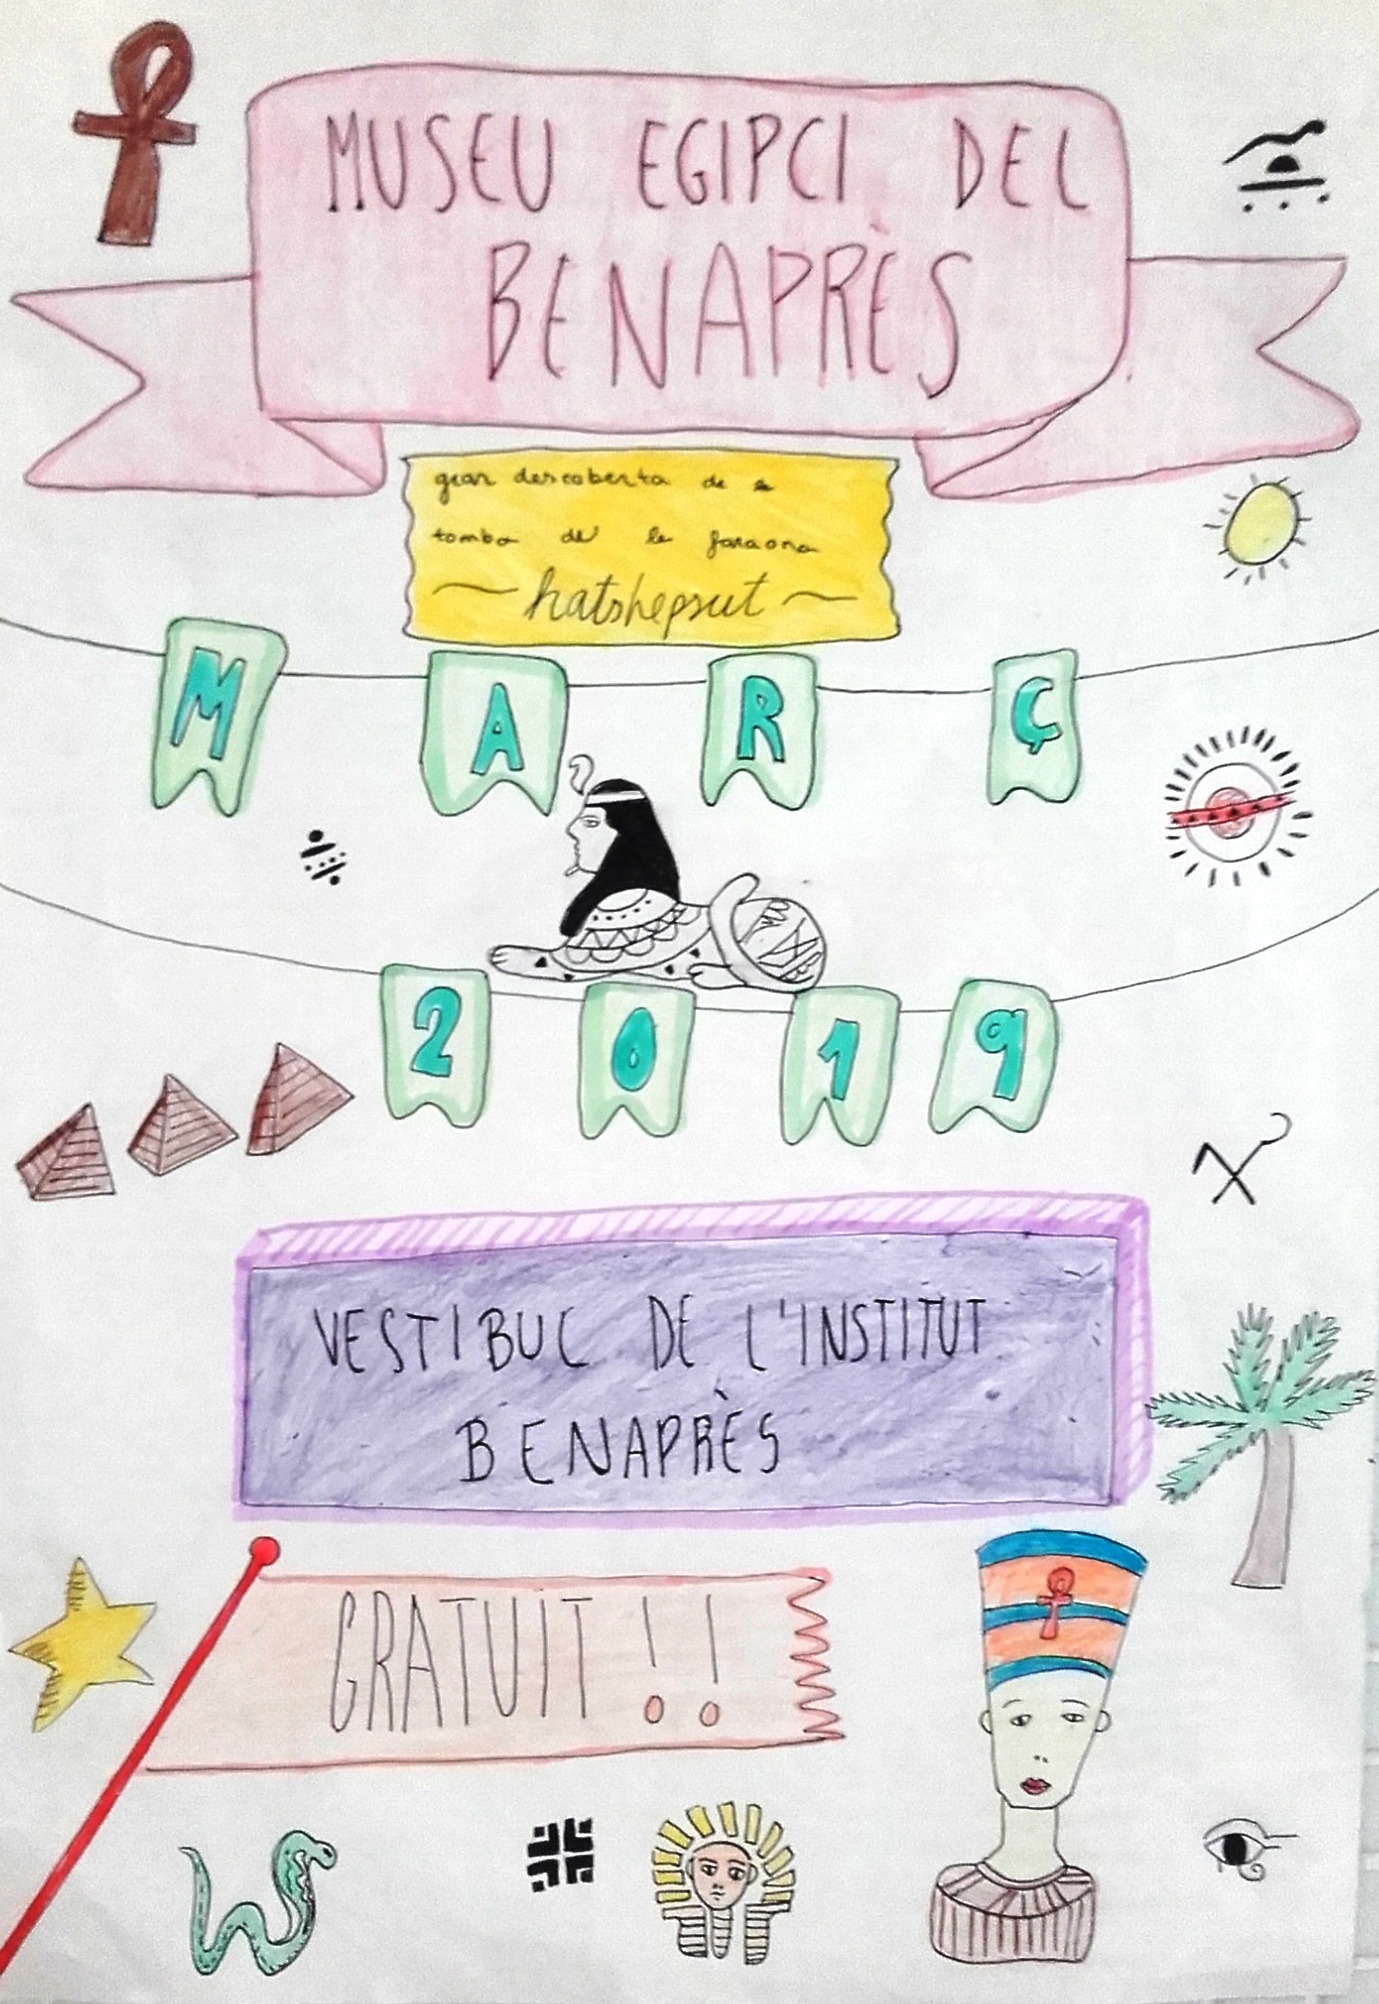 MUSEU EGIPCI DEL
BENAPRÈS
gran descoberta de la
tomba de la faraona
~ hatshepsut ~
MARÇ
2019
VESTIBUL DE L'INSTITUT
BENAPRÈS
GRATUIT!!